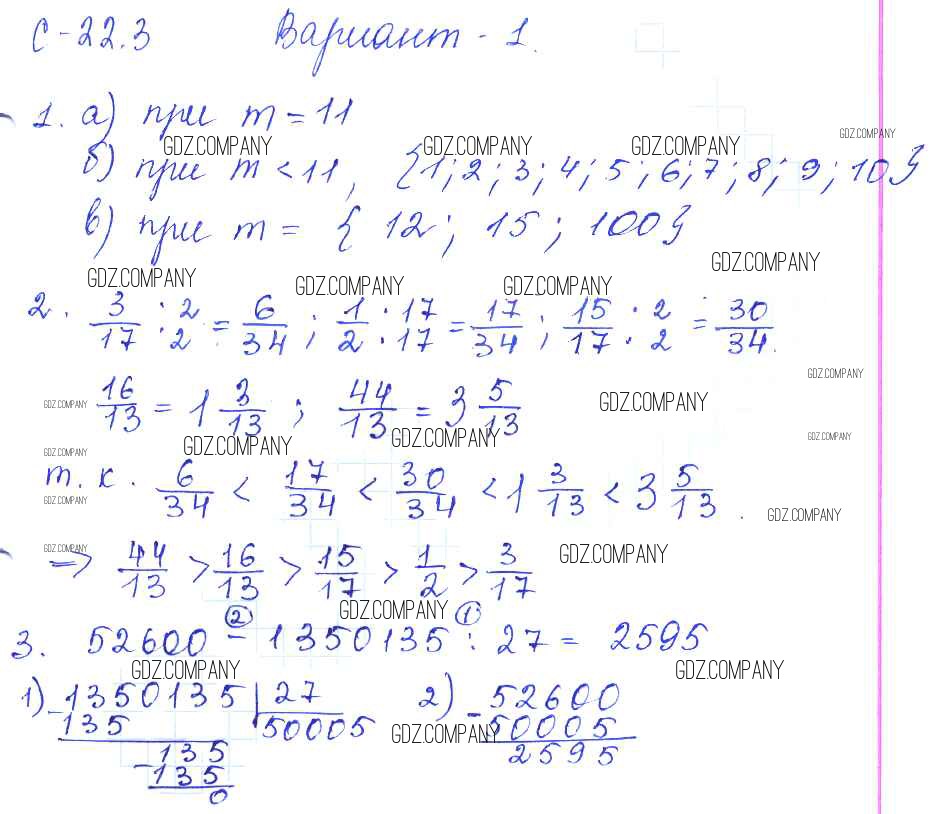 С-22.3 Вариант - 1.
1. а) при m = 11
GDZ.COMPANY GDZ.COMPANY GDZ.COMPANY GDZ.COMPANY
б) при m < 11, {1; 2; 3; 4; 5; 6; 7; 8; 9; 10}
в) при m = { 12; 15; 100}
GDZ.COMPANY GDZ.COMPANY GDZ.COMPANY GDZ.COMPANY
2. 3/17 : 2/2 = 6/34 ; 1/2 · 17/17 = 17/34 ; 15/17 · 2/2 = 30/34.
GDZ.COMPANY
GDZ.COMPANY 16/13 = 1 3/13 ; 44/13 = 3 5/13 GDZ.COMPANY
GDZ.COMPANY GDZ.COMPANY GDZ.COMPANY
GDZ.COMPANY
т.к. 6/34 < 17/34 < 30/34 < 1 3/13 < 3 5/13 .
GDZ.COMPANY GDZ.COMPANY
GDZ.COMPANY GDZ.COMPANY
=> 44/13 > 16/13 > 15/17 > 1/2 > 3/17
GDZ.COMPANY
② ①
3. 52600 - 1350135 : 27 = 2595
GDZ.COMPANY GDZ.COMPANY
1) 1350135 | 27 2) - 52600
- 135 50005 GDZ.COMPANY 50005
- 135 2595
135
0